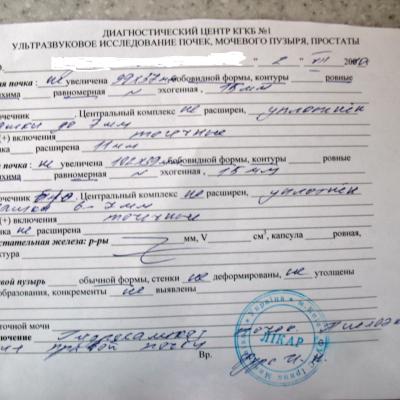 ДИАГНОСТИЧЕСКИЙ ЦЕНТР КГКБ №1
УЛЬТРАЗВУКОВОЕ ИССЛЕДОВАНИЕ ПОЧЕК, МОЧЕВОГО ПУЗЫРЯ, ПРОСТАТЫ
" 2 " VII 200
я почка : не увеличена бобовидной формы, контуры ровные
хима равномерная ~ эхогенная , 15 мм
ечник . Центральный комплекс не расширен, уплотнён
до 7 мм
(+) включения точечные
нка расширена 11 мм
я почка : не увеличена бобовидной формы, контуры ровные
хима равномерная ~ эхогенная , 15 мм
ечник б/о . Центральный комплекс не расширен, уплотнён
6-7 мм
(+) включения точечные
нка не расширена
стательная железа: р-ры мм, V см³, капсула ровная,
ктура
вой пузырь обычной формы, стенки не деформированы, не утолщены
образования, конкременты не выявлены
точной мочи
ючение почек.
правой почки
Вр.
ЛІКАР